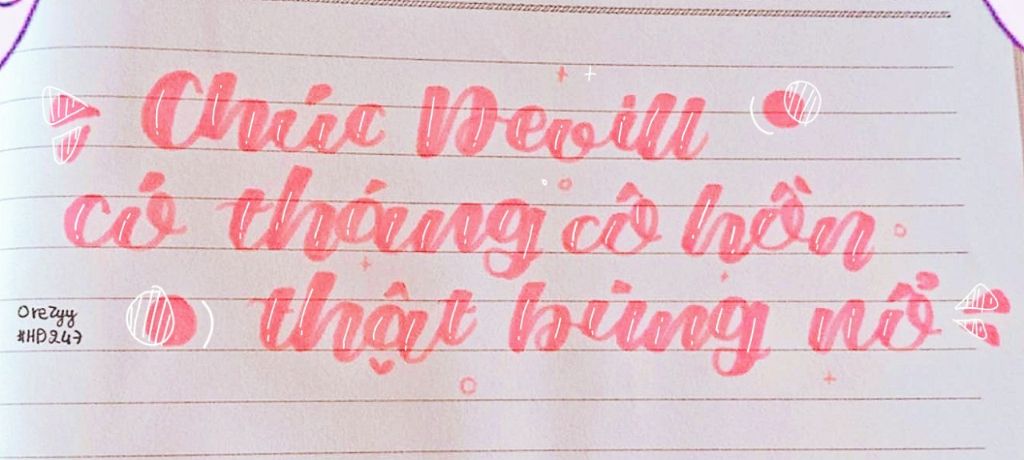 Chúc Devill
có tháng cô hồn
thật bùng nổ
Orezyy
#HD247